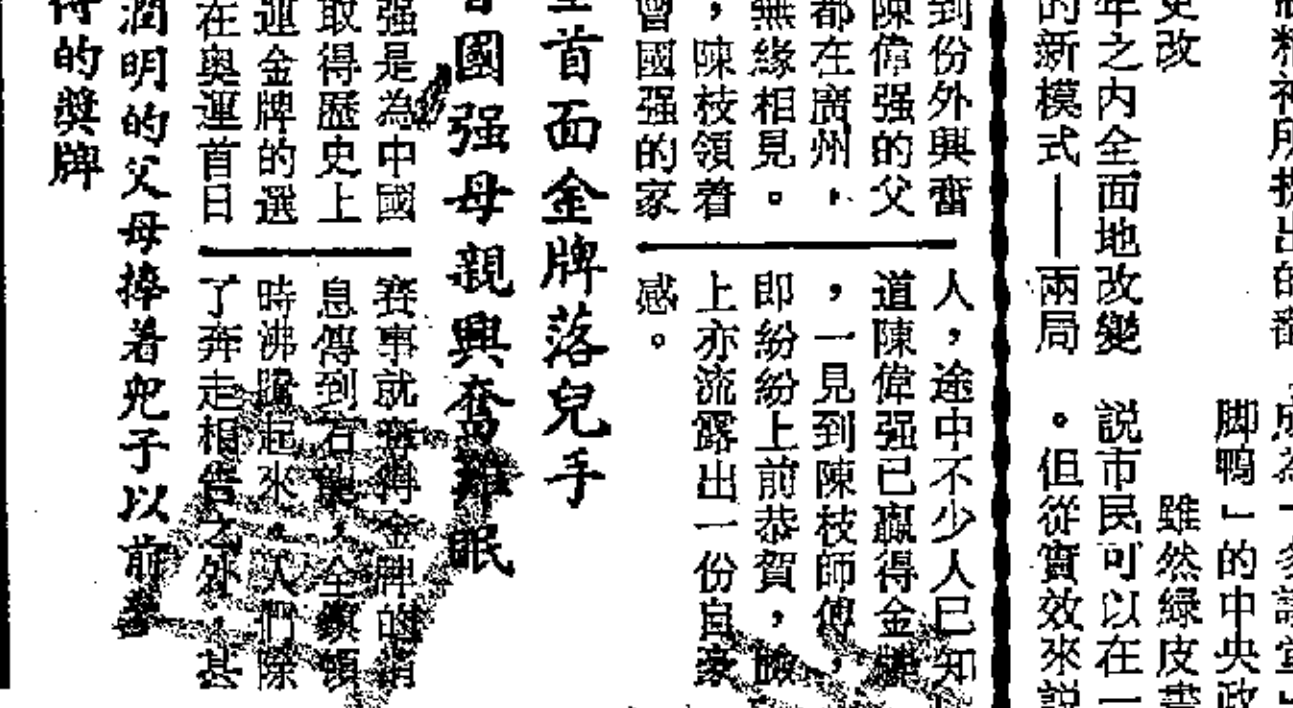 年之内全面地改變
的新模式——兩局
脚鴨」的中央政
雖然緑皮書
説市民可以在一
。但從實效來説
到份外興奮
陳偉强的父
都在廣州，
無緣相見。
，陳枝領着
曾國强的家
人，途中不少人已知
道陳偉强已贏得金牌
，一見到陳枝師傅，
即紛紛上前恭賀，臉
上亦流露出一份自豪
感。
首面金牌落兒手
國强母親興奮難眠
强是為中國
取得歷史上
運金牌的選
在奥運首日
賽事就奪得金牌的消
息傳到石龍，全鎮頓
時沸騰起來。人們除
了奔走相告之外，甚
潤明的父母捧着兒子以前
得的獎牌